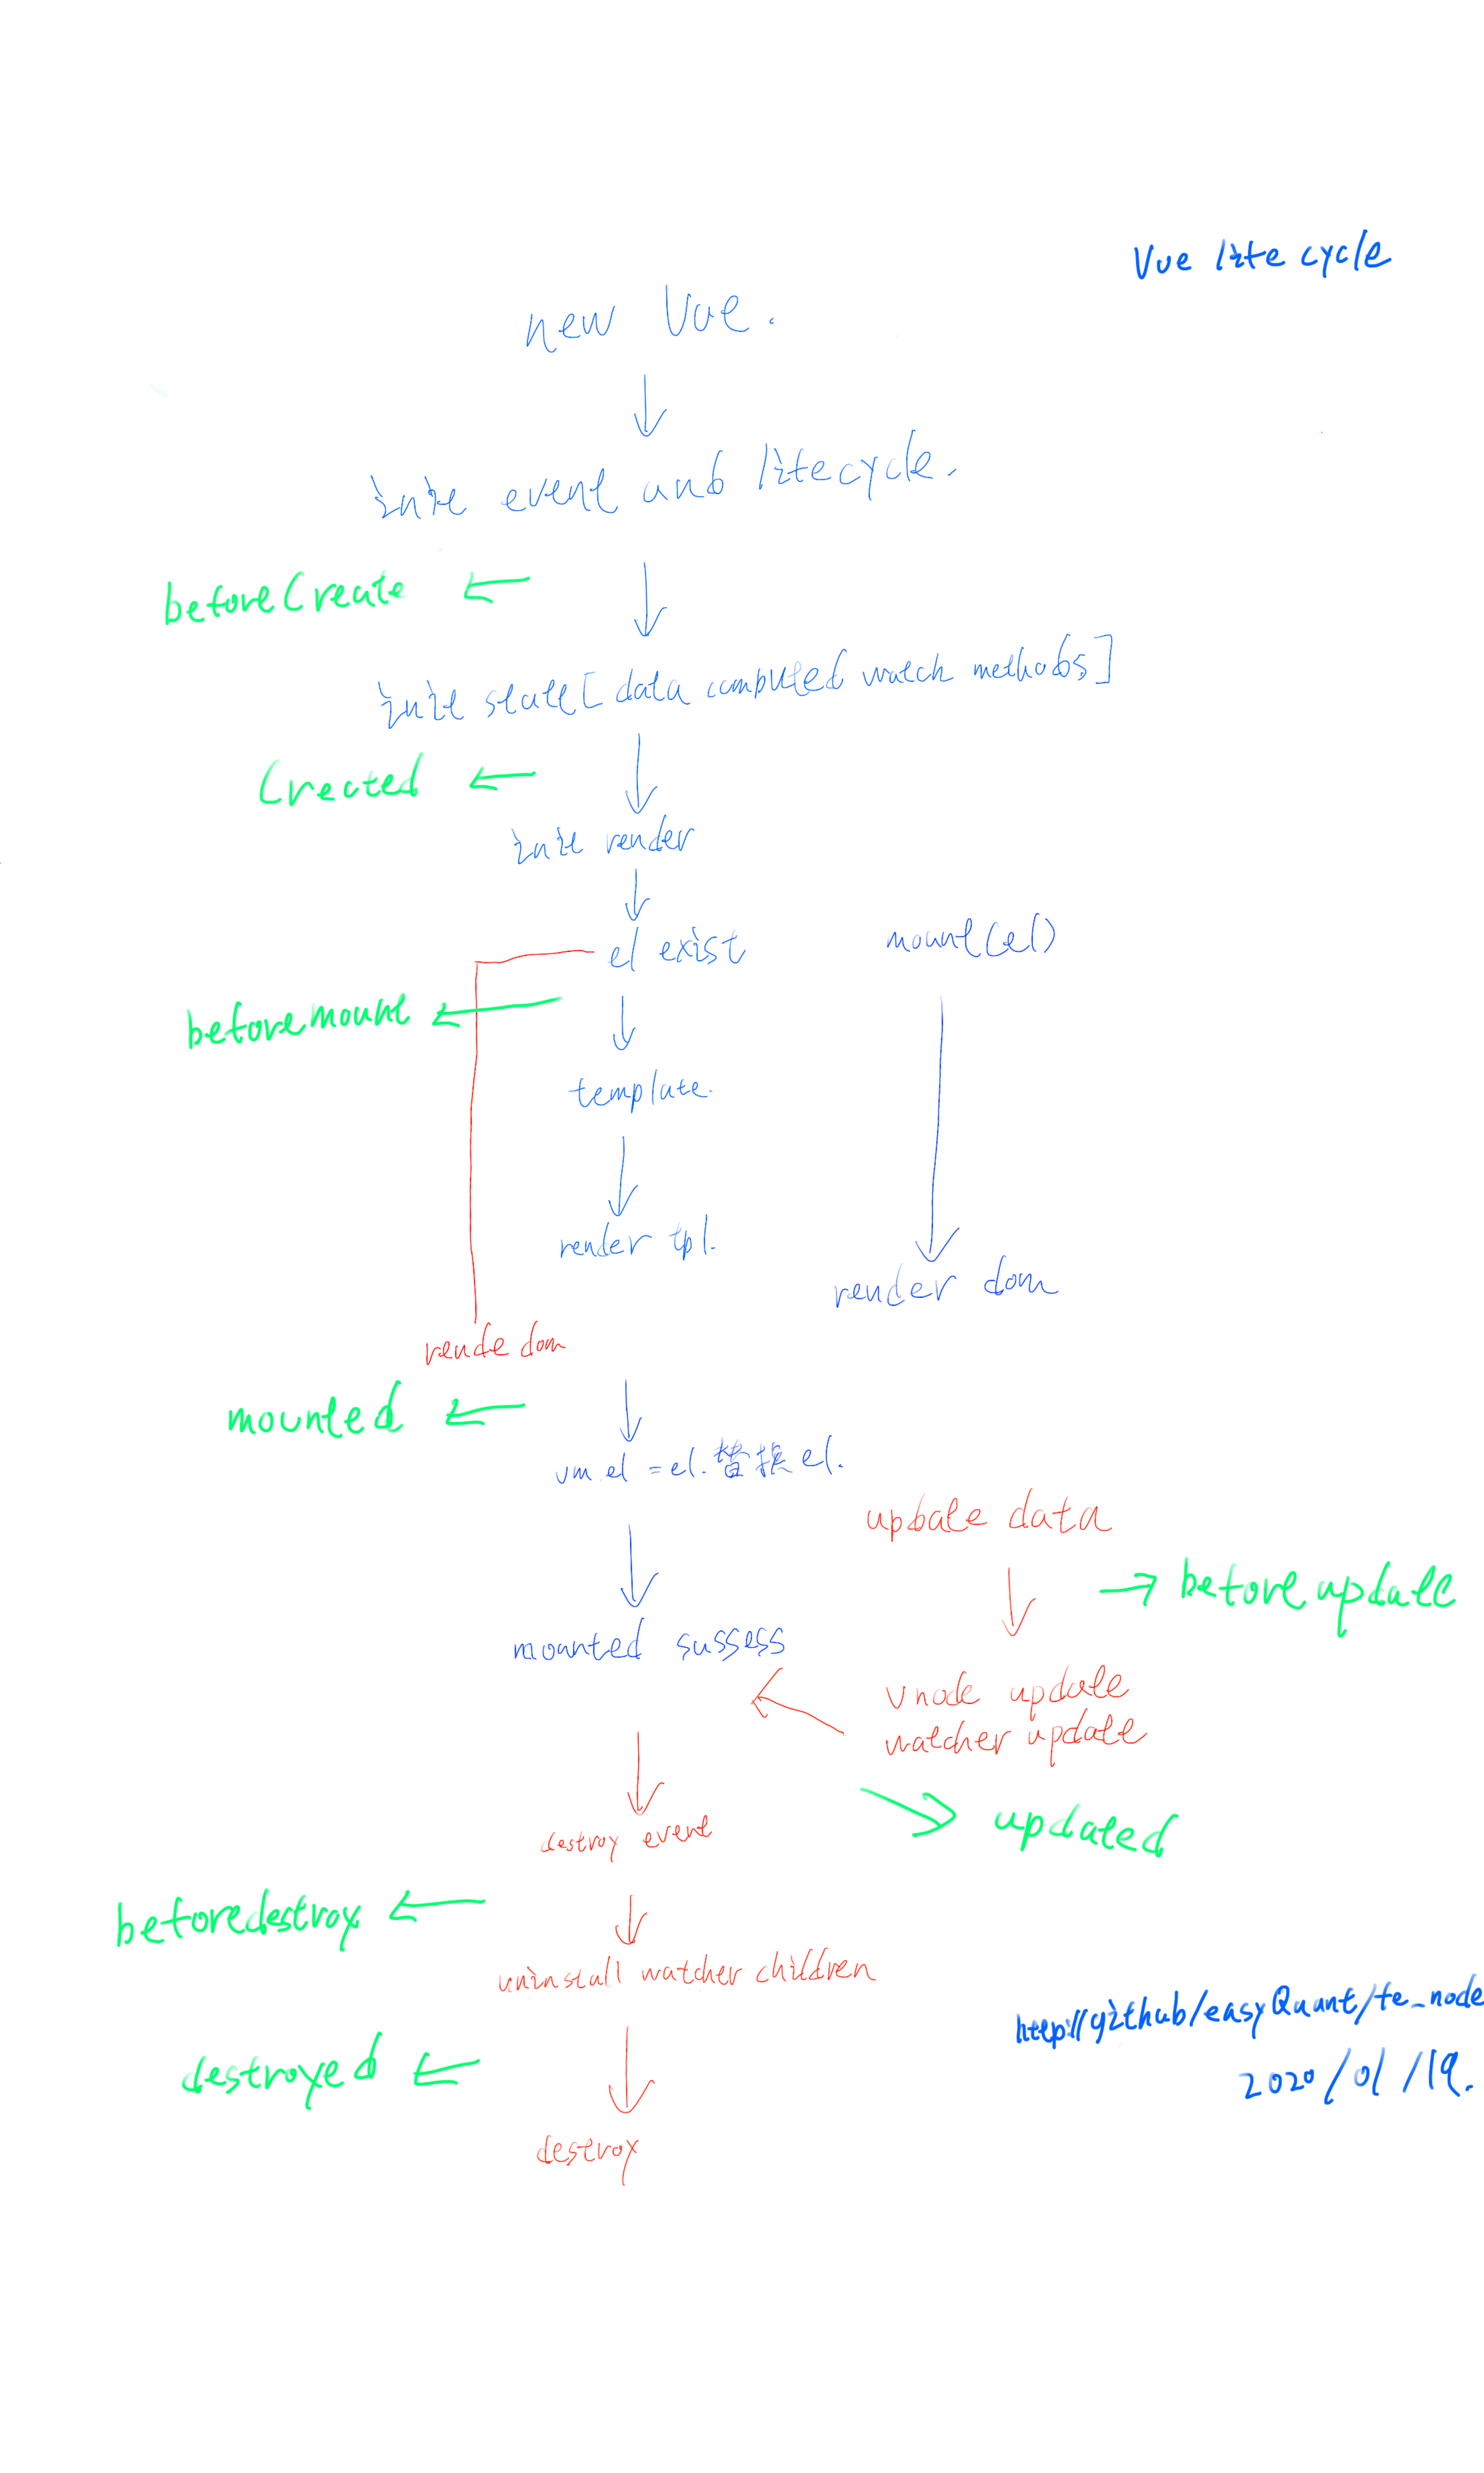 Vue life cycle
new Vue.
init event and lifecycle.
beforeCreate
init state [data computed watch methods]
Created
init render
el exist
mount(el)
beforemount
template.
render tpl.
render dom
rende dom
mounted
vm.el = el.替换el.
update data
beforeupdate
mounted sussess
vnode update
watcher update
updated
destroy event
beforedestroy
uninstall watcher children
http://github/easyQuant/fe_node
destroyed
2020/01/19.
destroy